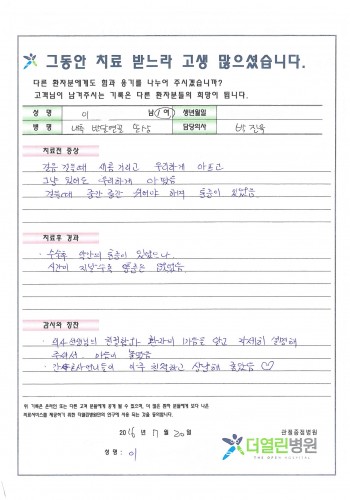 그동안 치료 받느라 고생 많으셨습니다.
다른 환자분에게도 힘과 용기를 나누어 주시겠습니까?
고객님이 남겨주시는 기록은 다른 환자분들의 희망이 됩니다.
성 명 이 남/여 생년월일
병 명 내측 반달연골 손상 담당의사 박진욱
치료전 증상
걸음 걸을때 시큰거리고 우리하게 아프고
그냥 있어도 우리하게 아팠음
걸을때 중간중간 쉬어야 하며 통증이 있었음.
치료후 경과
· 수술후 약간의 통증이 있었으나
시간이 지날수록 통증은 없었음
감사와 칭찬
· 의사선생님의 친절하고 환자의 마음을 알고 자세히 설명해
주셔서 마음이 놓였음
· 간호사언니들이 아주 친절하고 상냥해 좋았음 ♡
위 기록은 온라인 또는 다른 고객 분들에게 공개 될 수 있으며, 이 점은 환자 분들에게 보다 나은
의료서비스를 제공하기 위한 더열린병원만의 연구에 사용 되는 것을 동의합니다.
2016 년 7 월 20 일
성 명 : 이
관절중점병원
더열린병원
THE OPEN HOSPITAL